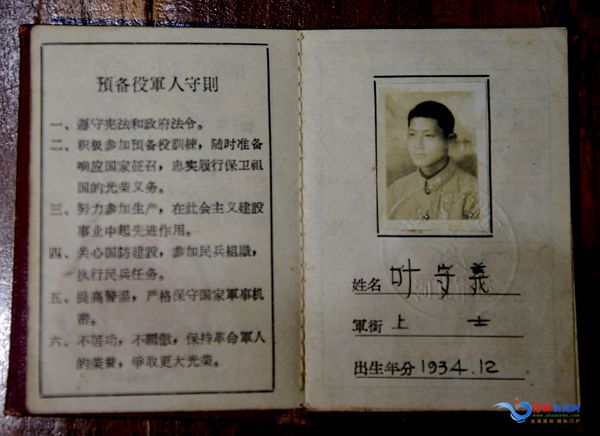 預备役軍人守則
一、遵守宪法和政府法令。
二、积极参加預备役訓練，随时准备
响应国家征召，忠实履行保卫祖
国的光荣义务。
三、努力参加生产，在社会主义建設
事业中起先进作用。
四、关心国防建設，参加民兵組織，
执行民兵任务。
五、提高警惕，严格保守国家軍事机
密。
六、不居功，不驕傲，保持革命軍人
的荣誉，爭取更大光荣。
姓名 叶守義
軍銜 上士
出生年分 1934.12
新闻网
www.ahsanews.com